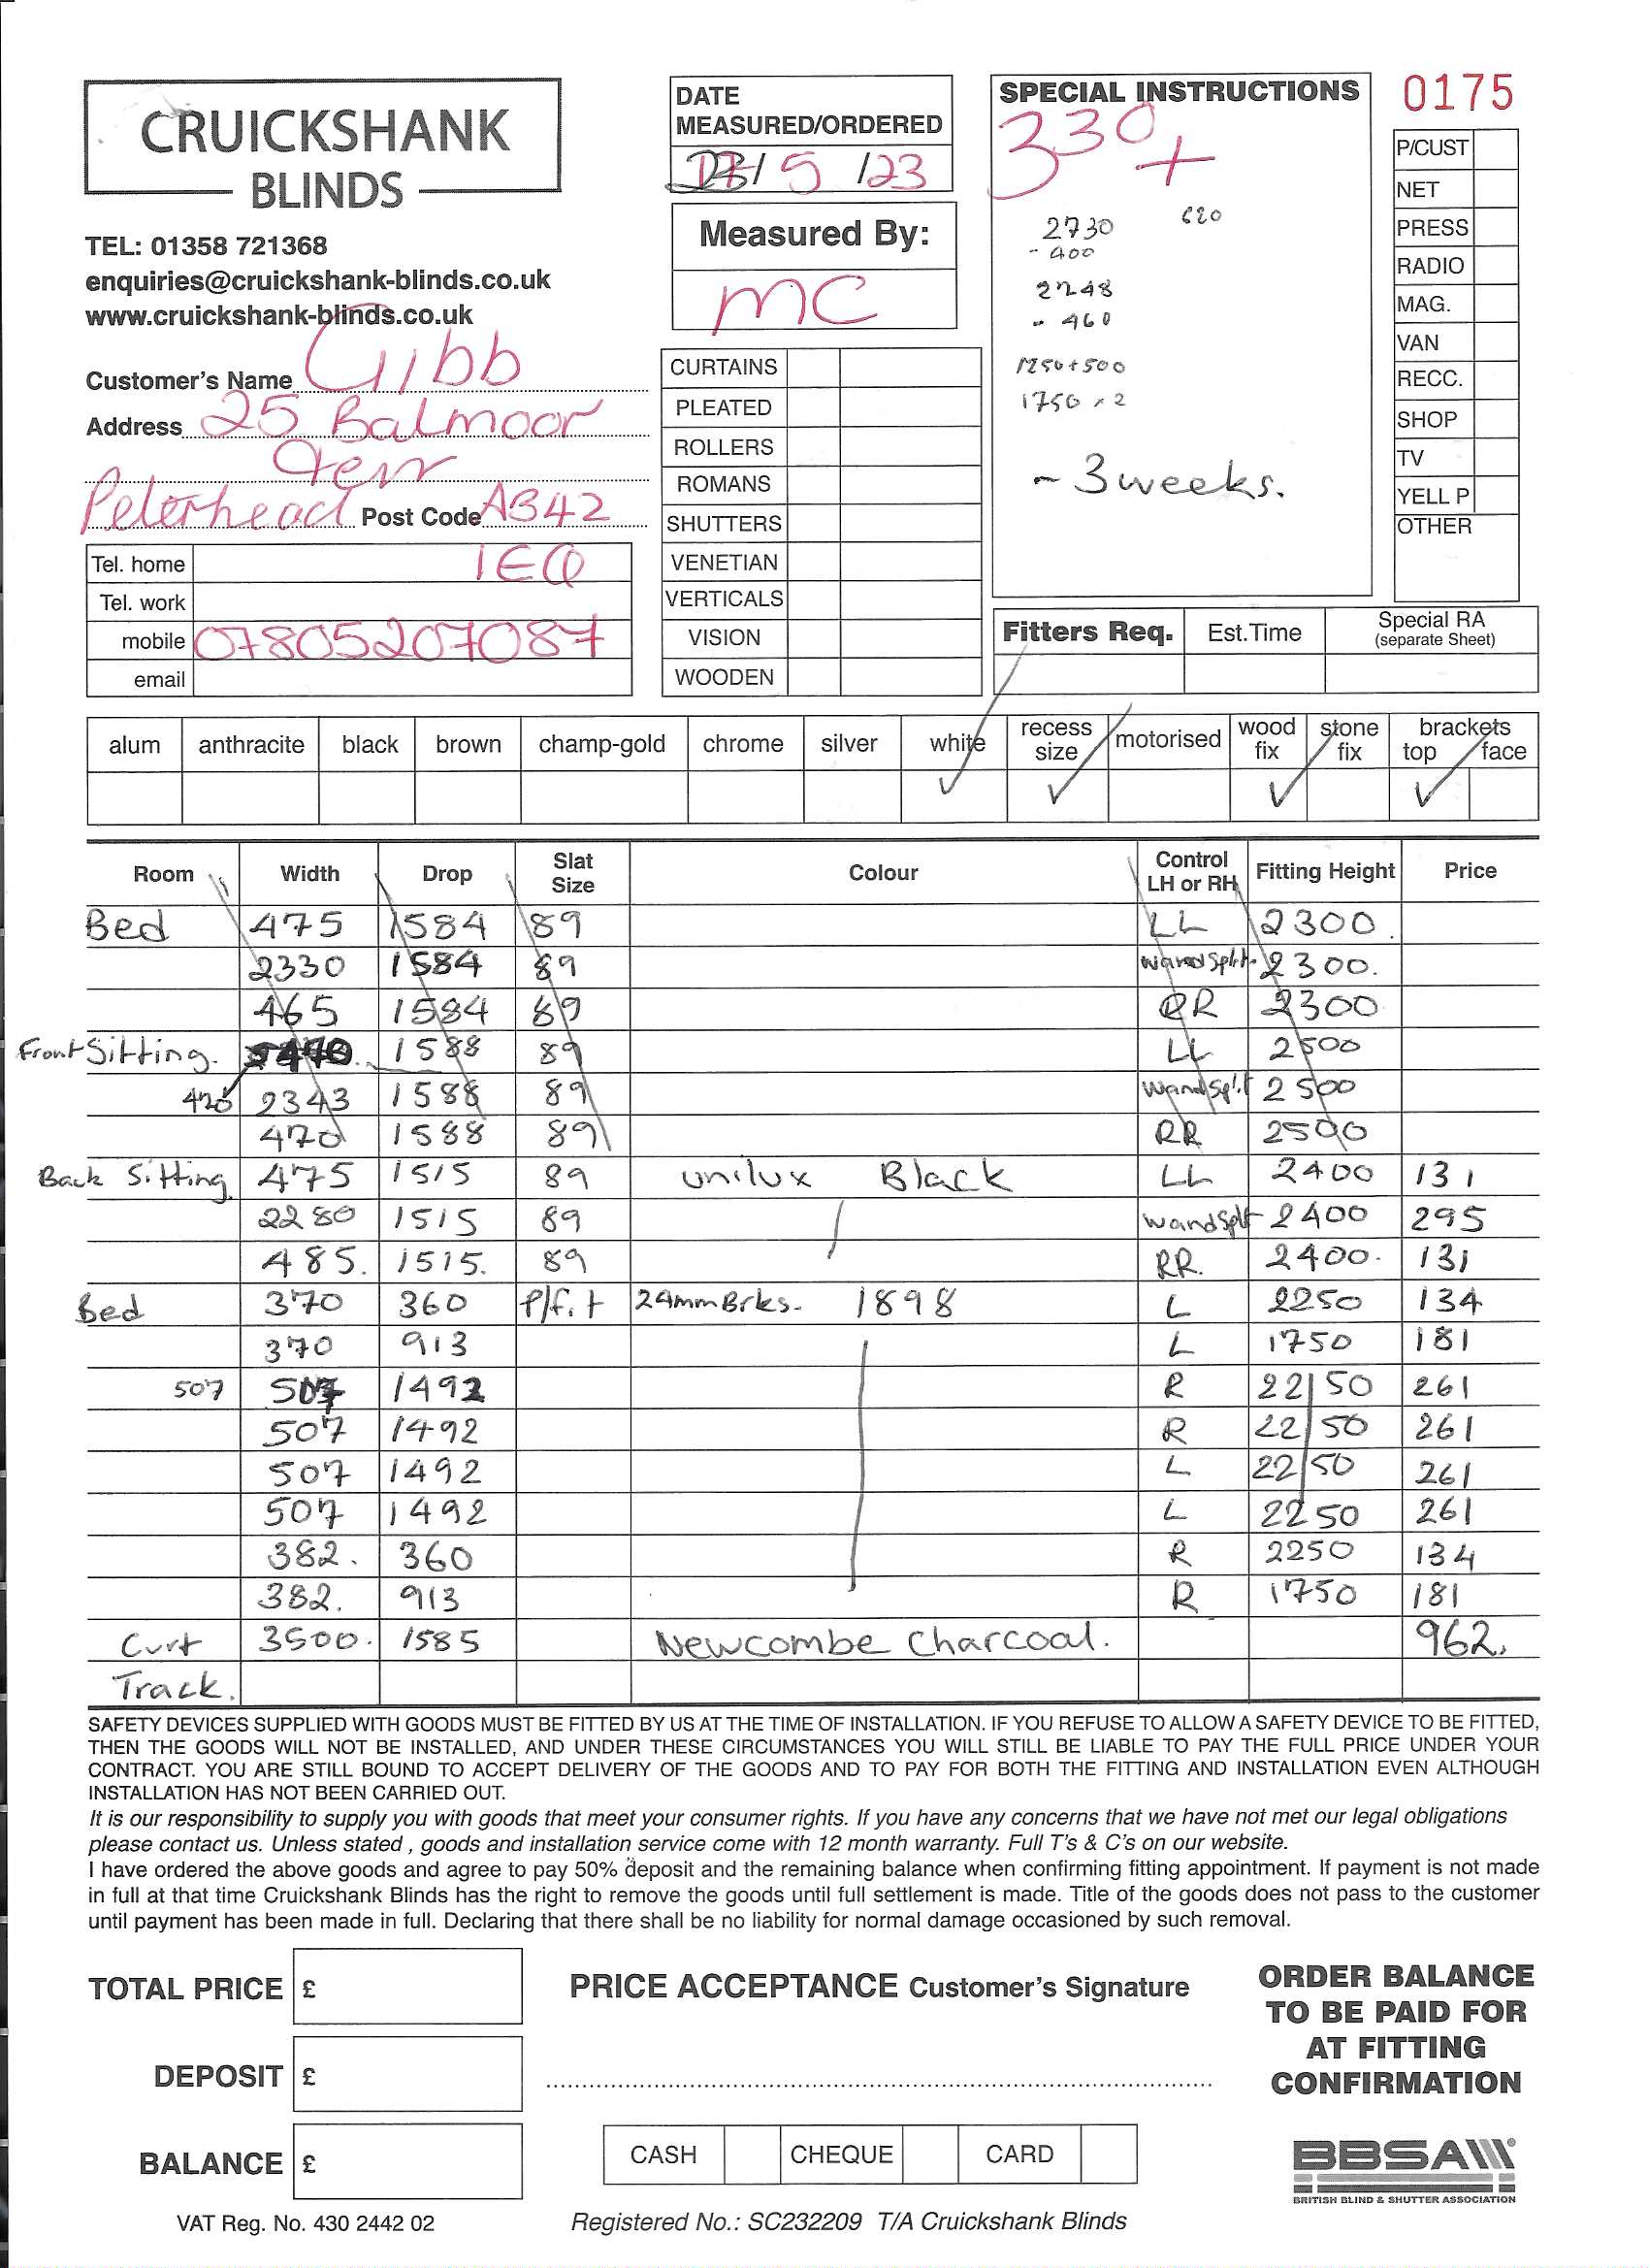 CRUICKSHANK
BLINDS
TEL: 01358 721368
enquiries@cruickshank-blinds.co.uk
www.cruickshank-blinds.co.uk
Customer's Name Gibb
Address 25 Balmoor
Terr
Peterhead Post Code AB42
Tel. home 1EQ
Tel. work
mobile 07805207087
email
DATE
MEASURED/ORDERED
/ 5 /23
Measured By:
MC
CURTAINS
PLEATED
ROLLERS
ROMANS
SHUTTERS
VENETIAN
VERTICALS
VISION
WOODEN
SPECIAL INSTRUCTIONS
330+
2730 620
- 400
2248
- 460
1250+500
1750 x 2
~ 3 weeks.
0175
P/CUST
NET
PRESS
RADIO
MAG.
VAN
RECC.
SHOP
TV
YELL P
OTHER
Fitters Req. Est.Time Special RA
(separate Sheet)
alum anthracite black brown champ-gold chrome silver white recess size motorised wood fix stone fix brackets top face
✓ ✓ ✓ ✓
Room Width Drop Slat Size Colour Control LH or RH Fitting Height Price
Bed 475 1584 89 LL 2300
2330 1584 89 Wand Split 2300.
465 1584 89 RR 2300
Front Sitting. 1588 89 LL 2500
470 2343 1588 89 Wand Split 2500
470 1588 89 RR 2500
Back Sitting. 475 1515 89 unilux Black LL 2400 131
2280 1515 89 Wand Split 2400 295
485. 1515. 89 RR. 2400. 131
Bed 370 360 P/fit 24mm Brks. 1898 L 2250 134
370 913 L 1750 181
507 507 1492 R 2250 261
507 1492 R 2250 261
507 1492 L 2250 261
507 1492 L 2250 261
382. 360 R 2250 134
382. 913 R 1750 181
Curt 3500. 1585 Newcombe Charcoal. 962.
Track.
SAFETY DEVICES SUPPLIED WITH GOODS MUST BE FITTED BY US AT THE TIME OF INSTALLATION. IF YOU REFUSE TO ALLOW A SAFETY DEVICE TO BE FITTED,
THEN THE GOODS WILL NOT BE INSTALLED, AND UNDER THESE CIRCUMSTANCES YOU WILL STILL BE LIABLE TO PAY THE FULL PRICE UNDER YOUR
CONTRACT. YOU ARE STILL BOUND TO ACCEPT DELIVERY OF THE GOODS AND TO PAY FOR BOTH THE FITTING AND INSTALLATION EVEN ALTHOUGH
INSTALLATION HAS NOT BEEN CARRIED OUT.
It is our responsibility to supply you with goods that meet your consumer rights. If you have any concerns that we have not met our legal obligations
please contact us. Unless stated , goods and installation service come with 12 month warranty. Full T's & C's on our website.
I have ordered the above goods and agree to pay 50% deposit and the remaining balance when confirming fitting appointment. If payment is not made
in full at that time Cruickshank Blinds has the right to remove the goods until full settlement is made. Title of the goods does not pass to the customer
until payment has been made in full. Declaring that there shall be no liability for normal damage occasioned by such removal.
TOTAL PRICE £
DEPOSIT £
BALANCE £
PRICE ACCEPTANCE Customer's Signature
CASH CHEQUE CARD
ORDER BALANCE
TO BE PAID FOR
AT FITTING
CONFIRMATION
BBSA
BRITISH BLIND & SHUTTER ASSOCIATION
VAT Reg. No. 430 2442 02
Registered No.: SC232209 T/A Cruickshank Blinds